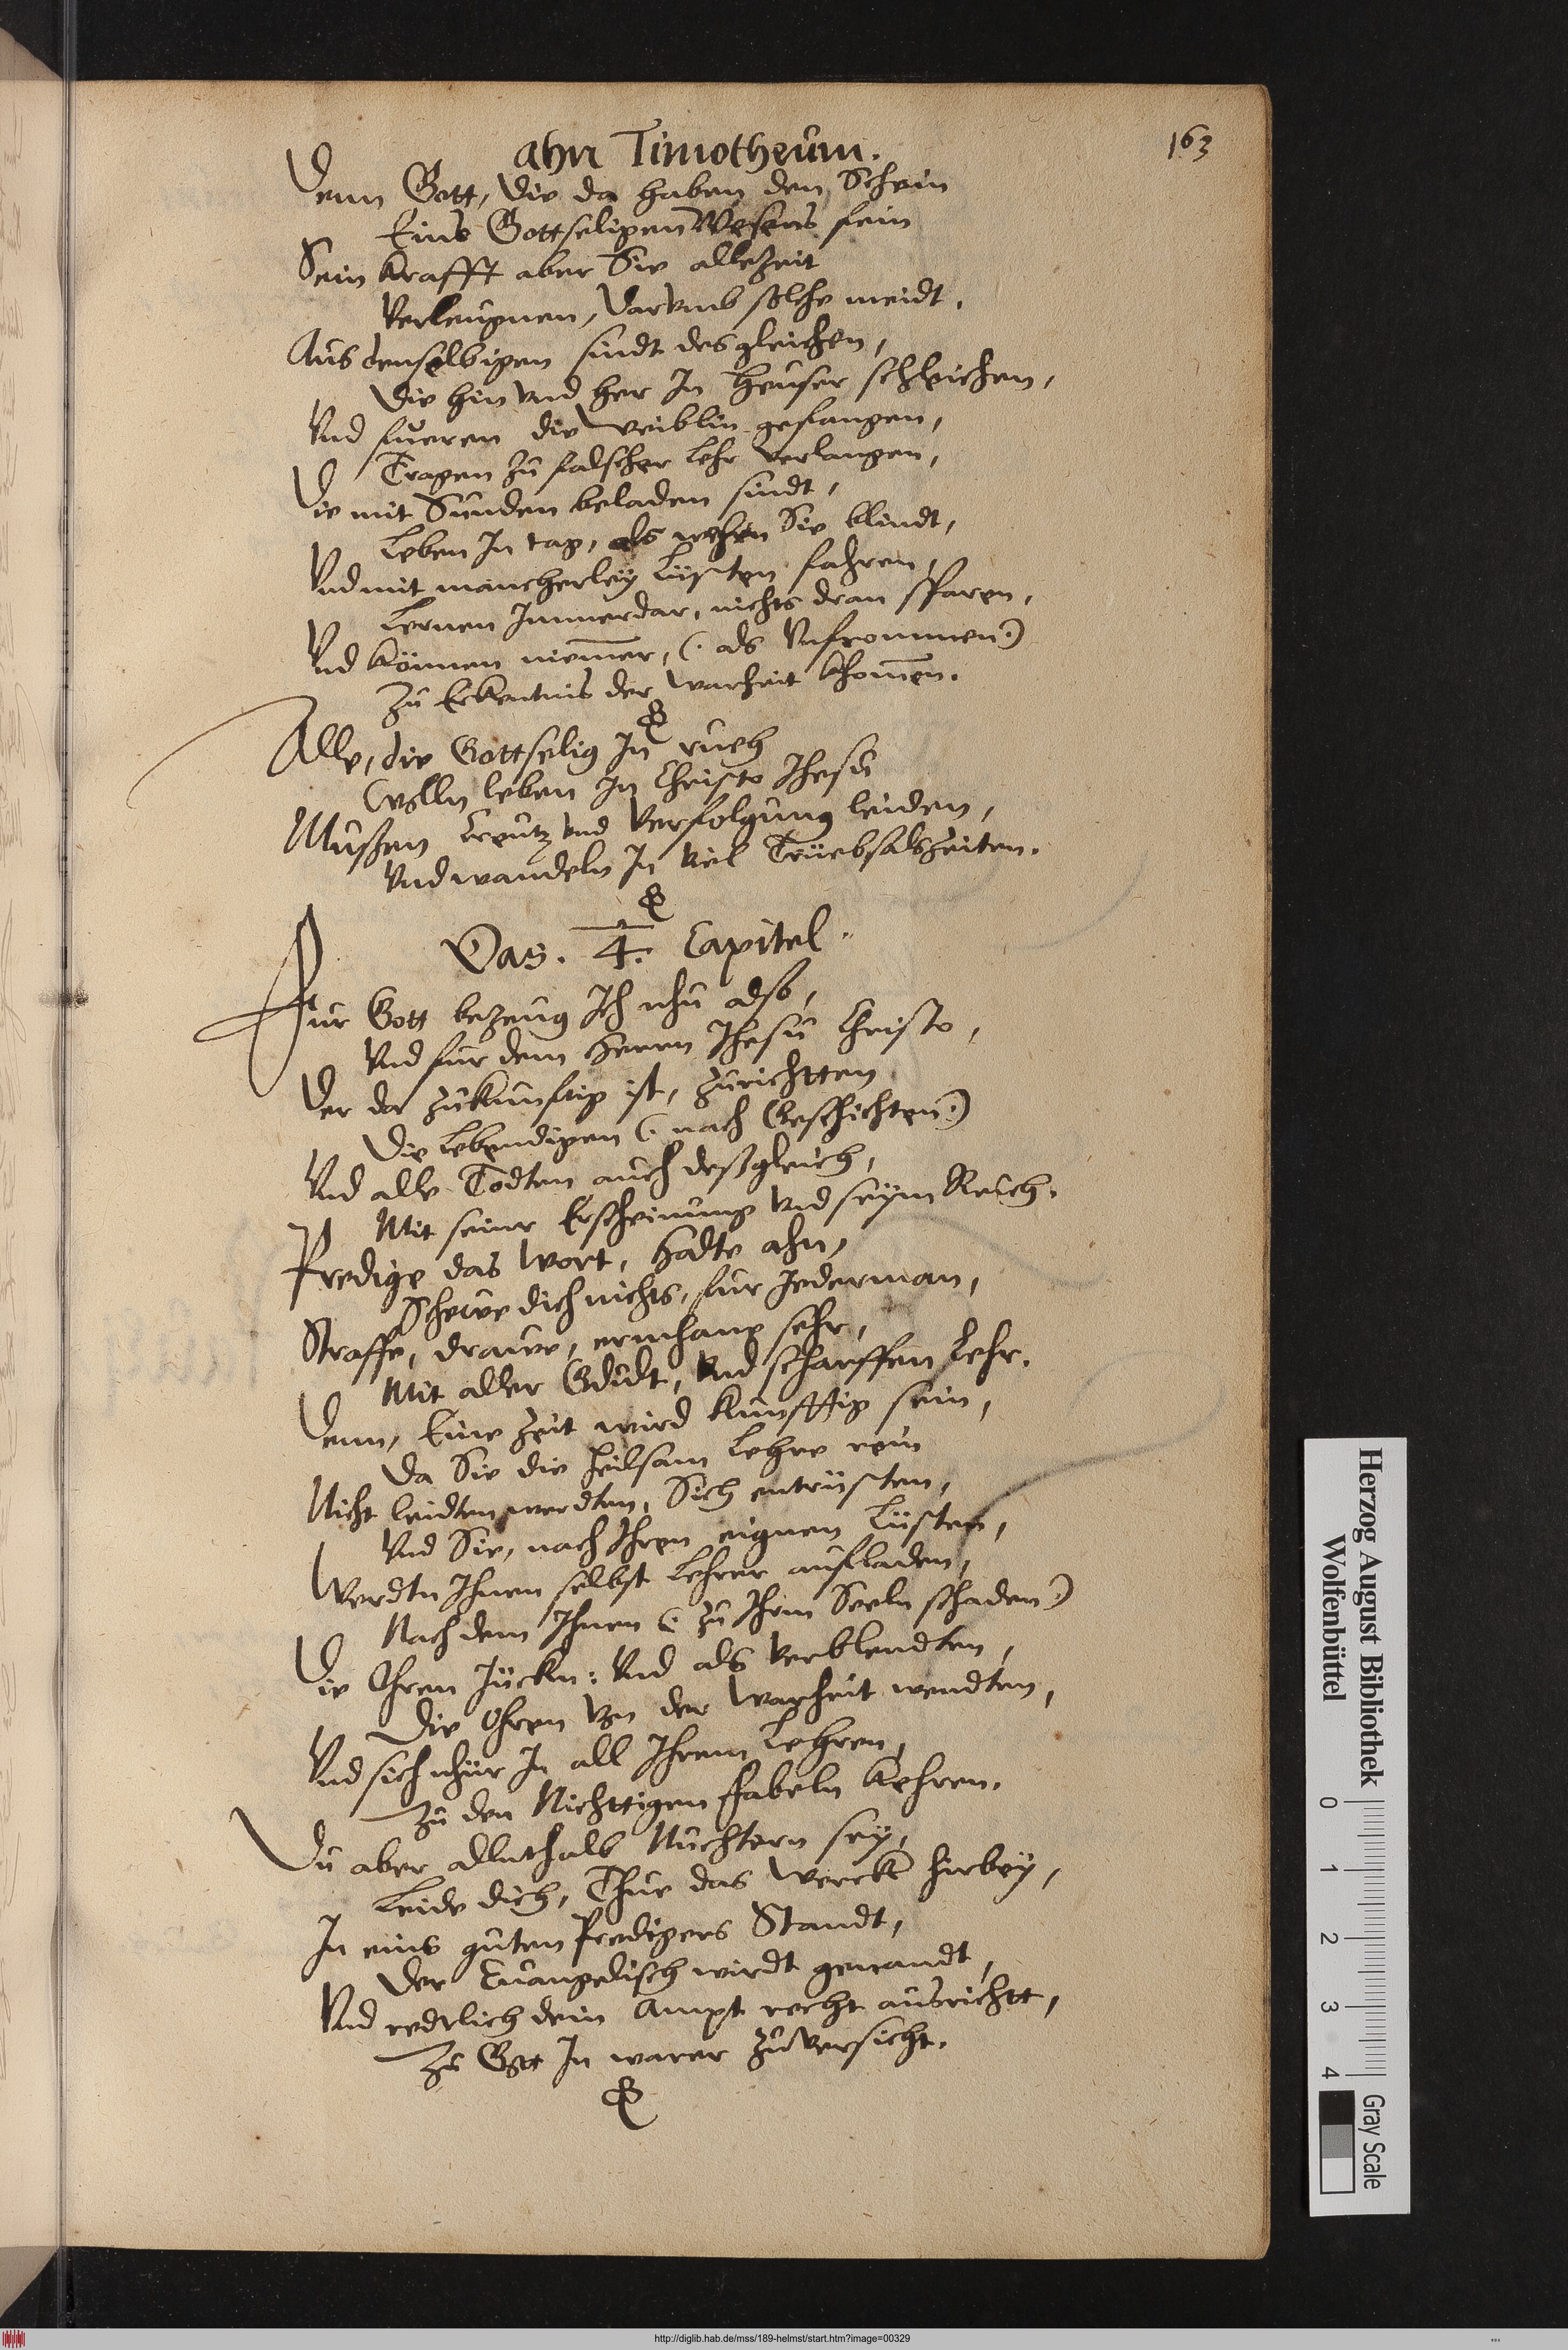 ahn Timotheum.
163
Denn Gott, die da haben den Schein
Eins Gottseligen Wesens sein
Sein krafft aber Sie allezeit
Verleugnen, darumb solche meidt.
Aus denselbigen sindt desgleichen,
Die hin vnd her In Heuser schleichen,
Vnd fueren die weiblin gefangen,
Tragen zu falscher Lehr verlangen,
Die mit Sunden beladen sindt,
Leben In tag, als wehren Sie blindt,
Vnd mit mancherley Lüsten fahren,
Lernen Immerdar, nichts dran sparen,
Vnd können niemer, (: als Vnfrommen:)
Zu Erkentnis der warheit khomen.
Alle, die Gottselig In rueh
Wolln leben In Christo Ihesu
Mußen Creutz vnd Verfolgung leiden,
Vnd wandeln In viel Trüebsalszeiten.
Das. 4. Capitel.
Fur Gott bezeug Ich nhu also,
Vnd fur dem Herrn Ihesu Christo,
Der da zukunftig ist, zurichtten
Die Lebendigen (: nach Geschichten:)
Vnd alle Todten auch deßgleich,
Mit seiner Erscheinung vnd seym Reich.
Predige das Wort, halte ahn,
Schewe dich nichts, fur Jederman,
Straffe, drawe, ermhane sehr,
Mit aller Gdult, vnd scharffen Lehr.
Denn, Eine Zeit wird kunfftig sein,
Da Sie die heilsam Lehre rein
Nicht leidten werdten, Sich entrüsten,
Vnd Sie, nach Ihren eignen Lüsten,
Werdtn Ihnen selbst Lehrer aufladen,
Nach dem Ihnen (: zu Ihrm Seeln schaden:)
Die Ohren Jückn: Vnd als verblendten,
Die Ohren von der Warheit wendten,
Vnd sich nhur In all Ihrem Lehren,
Zu den Nichttigen fabeln kehren.
Du aber allnthalb Nüchtern sey,
Leide dich, Thue das Werck hirbey,
In eins guten Predigers Standt,
Der Euangelisch wirdt genandt,
Vnd redlich dein Ampt recht ausricht,
Zu Gott In warer zuversicht.
Herzog August Bibliothek
Wolfenbüttel
0 1 2 3 4
Gray Scale
http://diglib.hab.de/mss/189-helmst/start.htm?image=00329